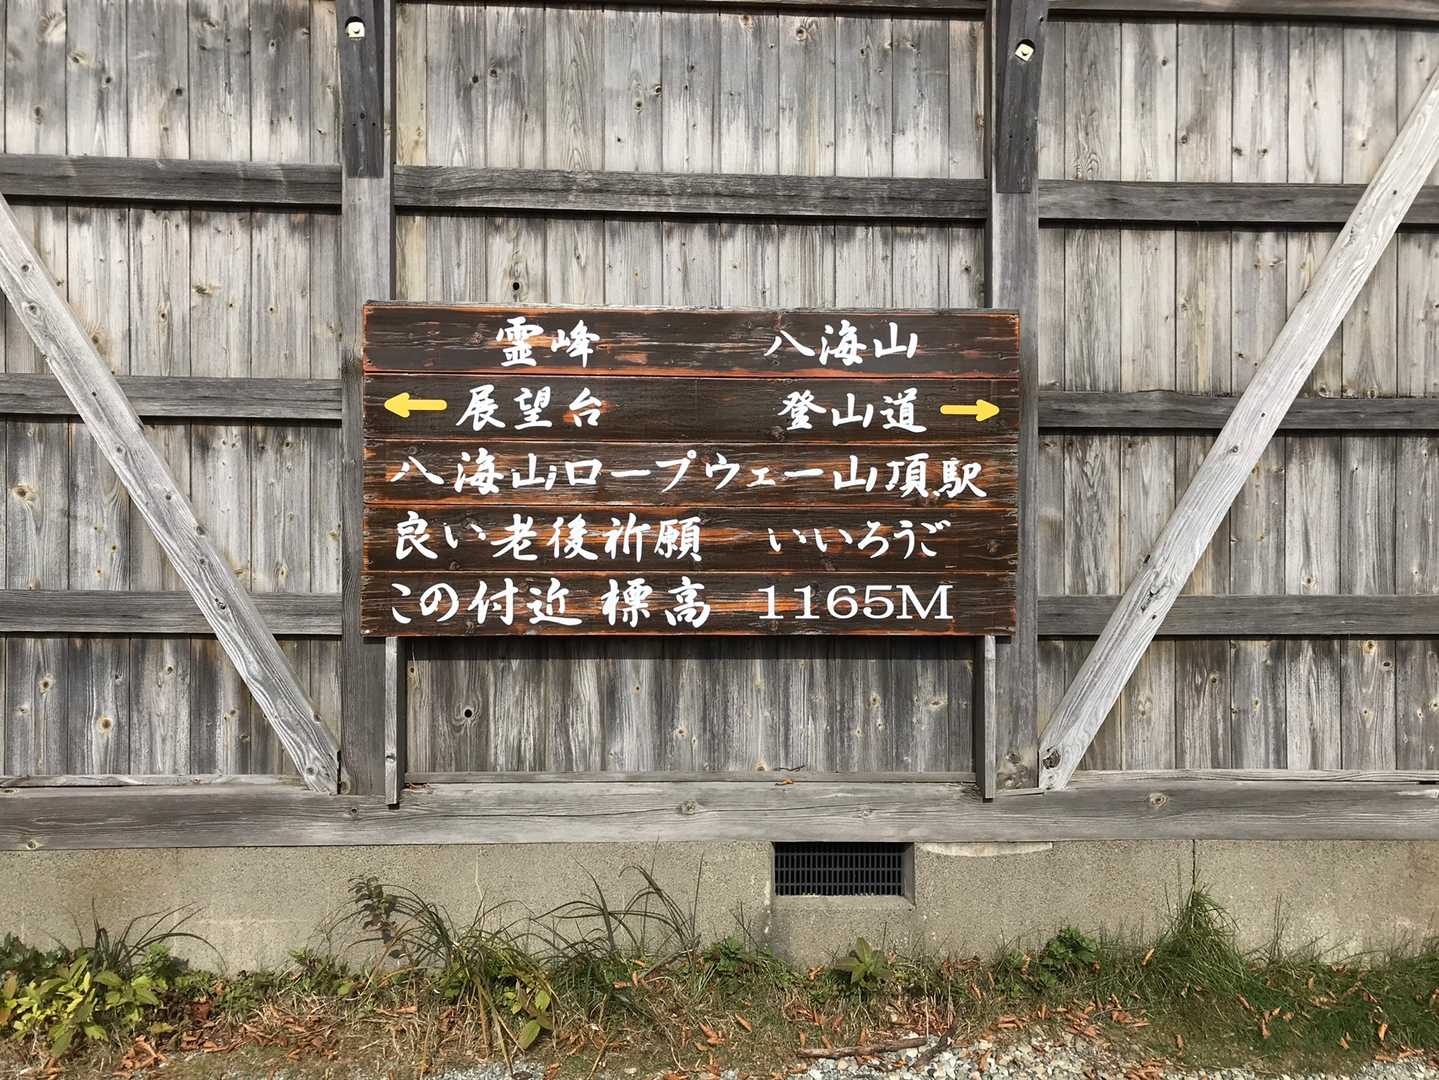 霊峰 八海山
← 展望台 登山道 →
八海山ロープウェー山頂駅
良い老後祈願 いいろうご
この付近 標高 1165M